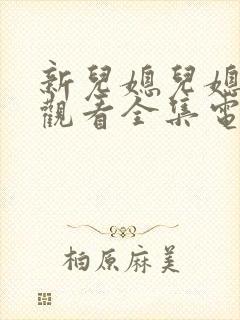 新兒媳兒媳
觀看全集電
柏原麻美